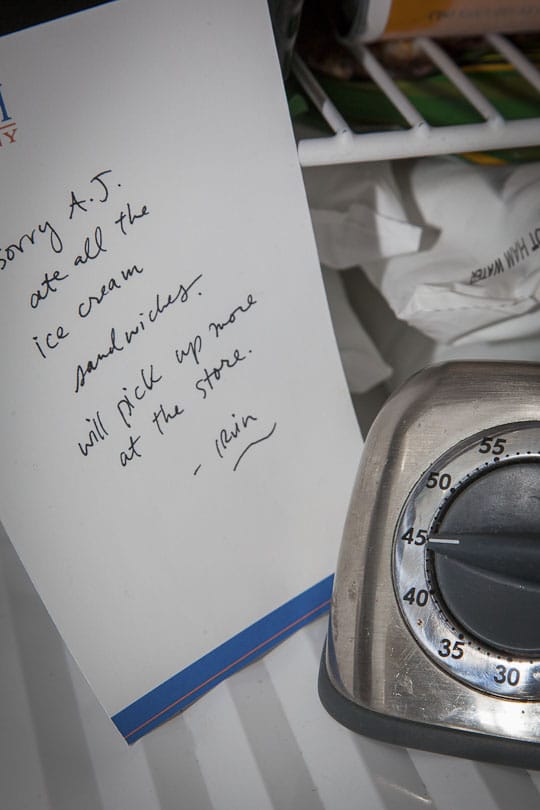 NY
sorry A.J.
ate all the
ice cream
sandwiches.
will pick up more
at the store.
- IRvin
OT HAM WATER
55
50
45
40
35
30